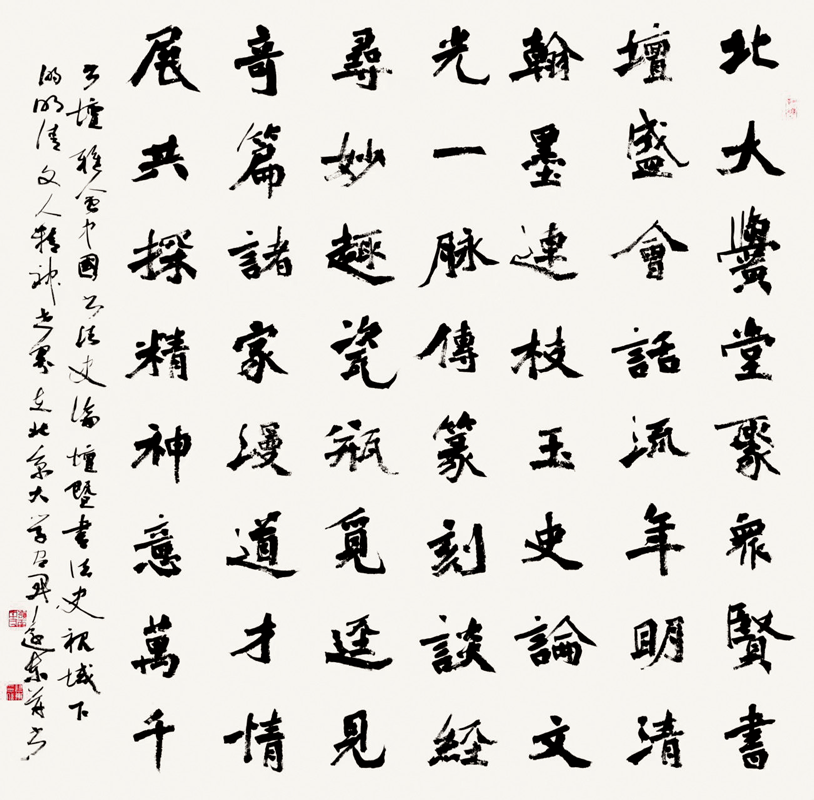 北大黌堂聚衆賢書
壇盛會話流年明清
翰墨連枝玉史論文
光一脉傳篆刻談經
尋妙趣瓷瓶覓逕見
奇篇諸家漫道才情
展共探精神意萬千
书壇雅會中國书法史論壇暨書法史視域下
的明清文人精神世界在北京大学召開東并书